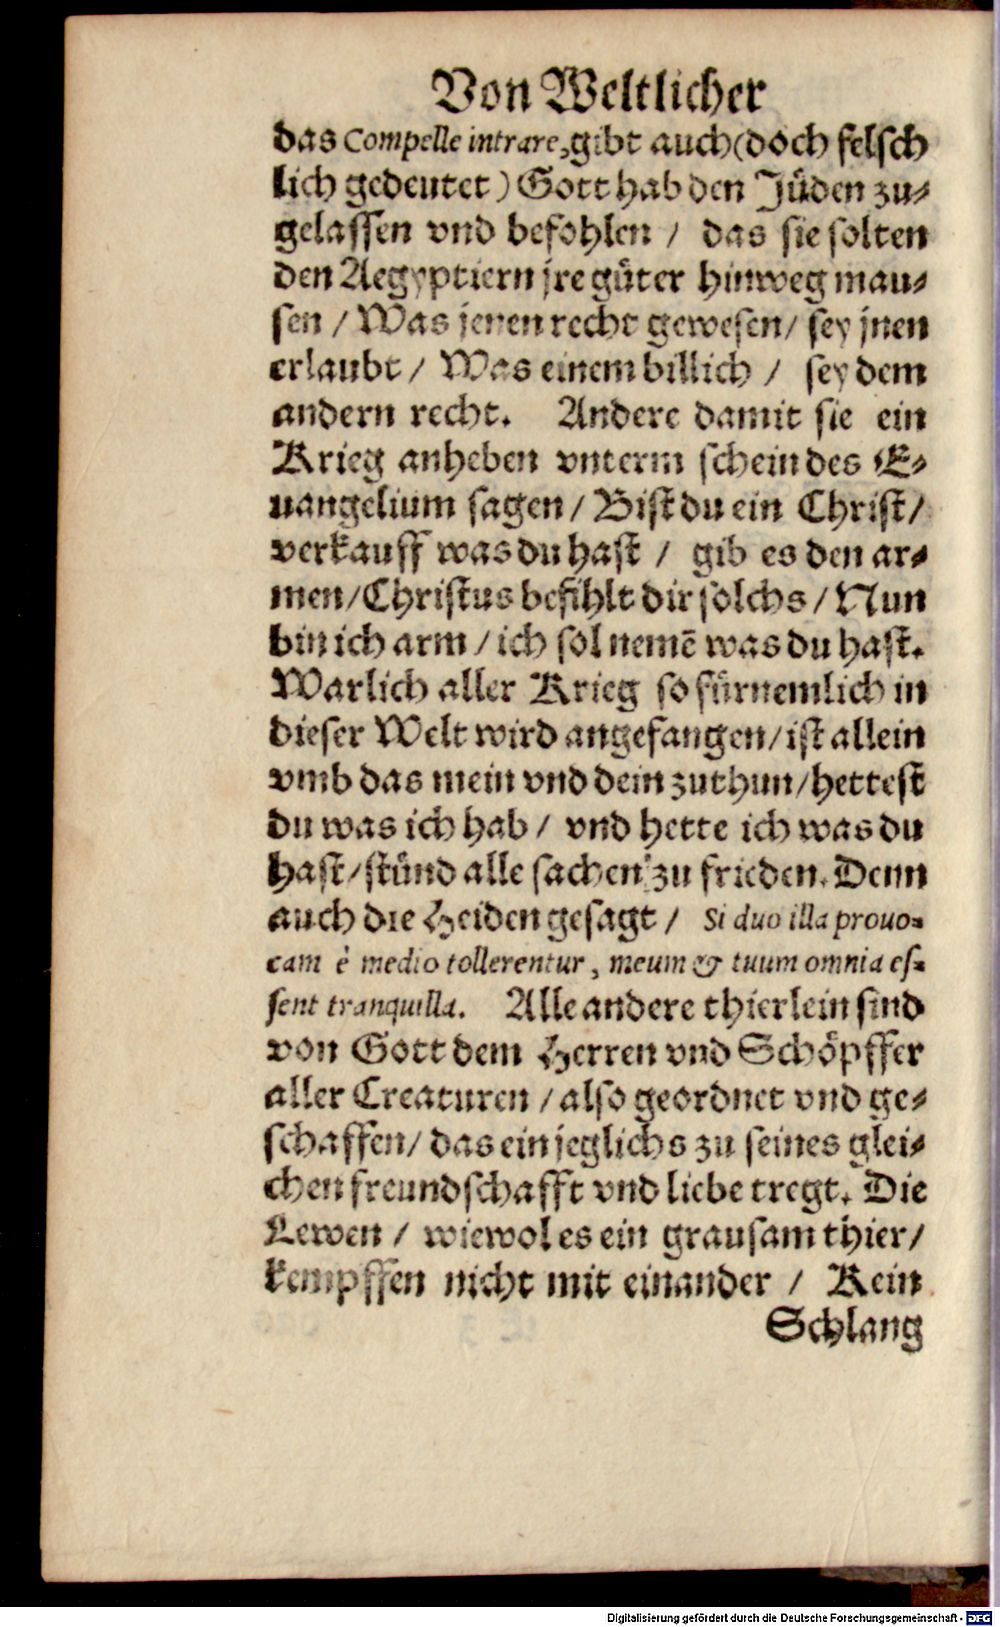 Von Weltlicher
das Compelle intrare, gibt auch (doch felsch
lich gedeutet) Gott hab den Jüden zu⸗
gelassen vnd befohlen / das sie solten
den Aegyptiern jre güter hinweg mau⸗
sen / Was jenen recht gewesen / sey jnen
erlaubt / Was einem billich / sey dem
andern recht. Andere damit sie ein
Krieg anheben vnterm schein des E⸗
uangelium sagen / Bist du ein Christ /
verkauff was du hast / gib es den ar⸗
men / Christus befihlt dir solchs / Nun
bin ich arm / ich sol nemē was du hast.
Warlich aller Krieg so fürnemlich in
dieser Welt wird angefangen / ist allein
vmb das mein vnd dein zuthun / hettest
du was ich hab / vnd hette ich was du
hast / stünd alle sachen zu frieden. Denn
auch die Heiden gesagt / Si duo illa prouo-
cam è medio tollerentur, meum & tuum omnia es-
sent tranquilla. Alle andere thierlein sind
von Gott dem Herren vnd Schöpffer
aller Creaturen / also geordnet vnd ge⸗
schaffen / das ein jeglichs zu seines glei⸗
chen freundschafft vnd liebe tregt. Die
Lewen / wiewol es ein grausam thier /
kempffen nicht mit einander / Kein
Schlang
Digitalisierung gefördert durch die Deutsche Forschungsgemeinschaft - DFG